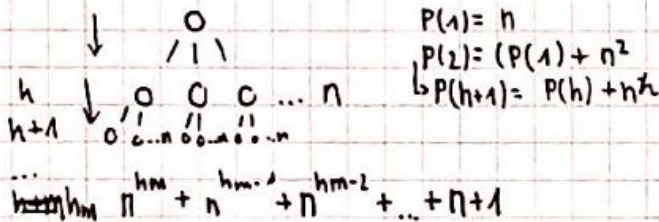 P(1) = n
P(2) = (P(1) + n²
↳ P(h+1) = P(h) + nʰ
h
... n
h+1
o o...n o o...n o o...n
...
hm n^hm + n^hm-1 + n^hm-2 + ... + n + 1